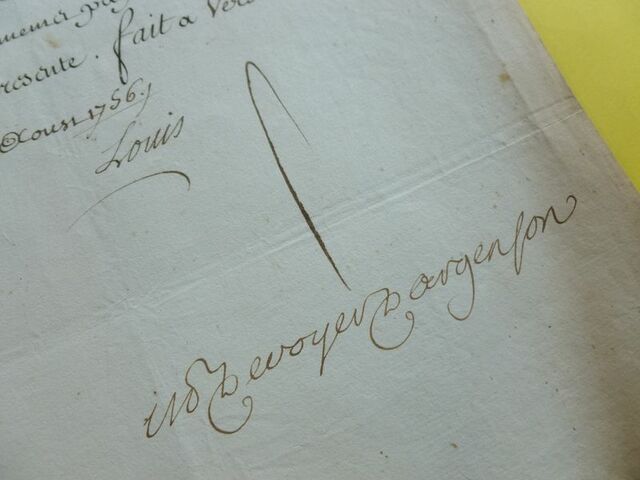 resente. fait a Vers
Aoust 1756.
Louis
M De voyer D argenson